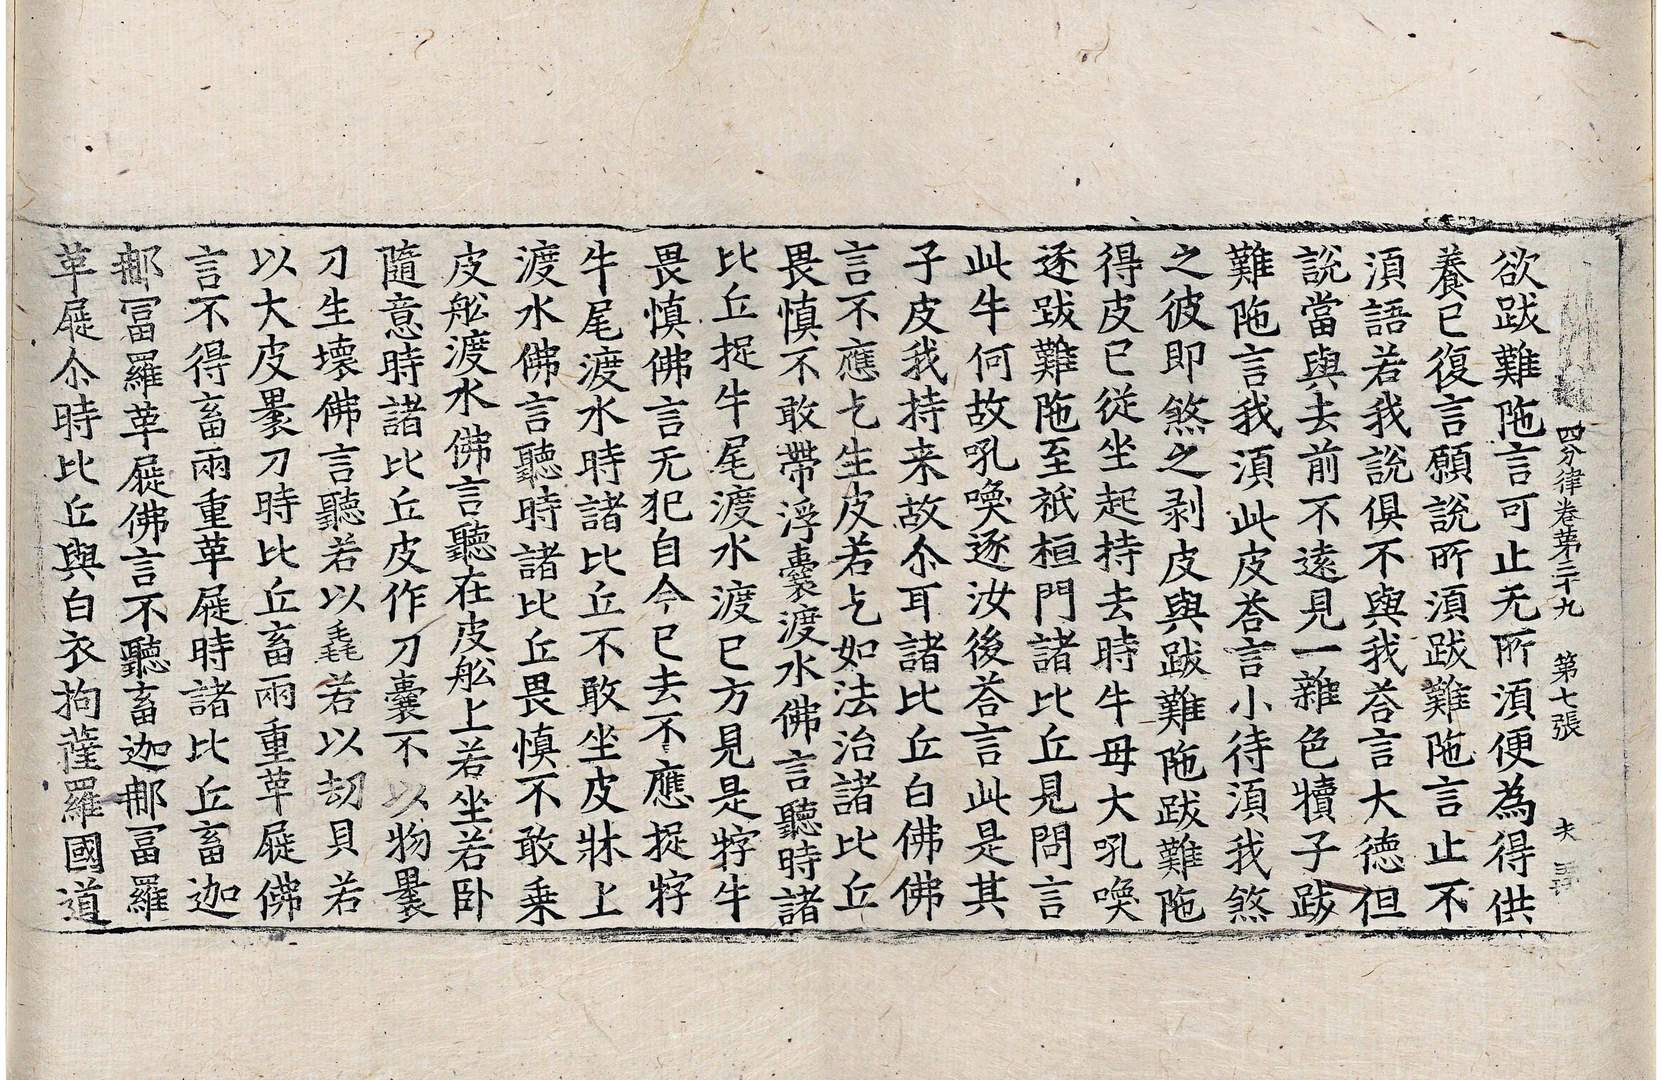 四分律卷第三十九　第七張　夫
欲跋難陁言可止无所湏便為得供
養已復言願說所湏跋難陁言止不
湏語若我說俱不與我荅言大德但
說當與去前不遠見一雜色犢子跋
難陁言我湏此皮荅言小待湏我煞
之彼即煞之剥皮與跋難陁跋難陁
得皮已從坐起持去時牛母大吼喚
逐跋難陁至祇桓門諸比丘見問言
此牛何故吼喚逐汝後荅言此是其
子皮我持来故尒耳諸比丘白佛佛
言不應乞生皮若乞如法治諸比丘
畏慎不敢帶浮囊渡水佛言聽時諸
比丘捉牛尾渡水渡已方見是牸牛
畏慎佛言无犯自今已去不應捉牸
牛尾渡水時諸比丘不敢坐皮牀上
渡水佛言聽時諸比丘畏慎不敢乗
皮舩渡水佛言聽在皮舩上若坐若卧
隨意時諸比丘皮作刀囊不以物褁
刀生壊佛言聽若以毳若以劫貝若
以大皮褁刀時比丘畜兩重革屣佛
言不得畜兩重革屣時諸比丘畜迦
郍冨羅革屣佛言不聽畜迦郍冨羅
革屣尒時比丘與白衣拘薩羅國道